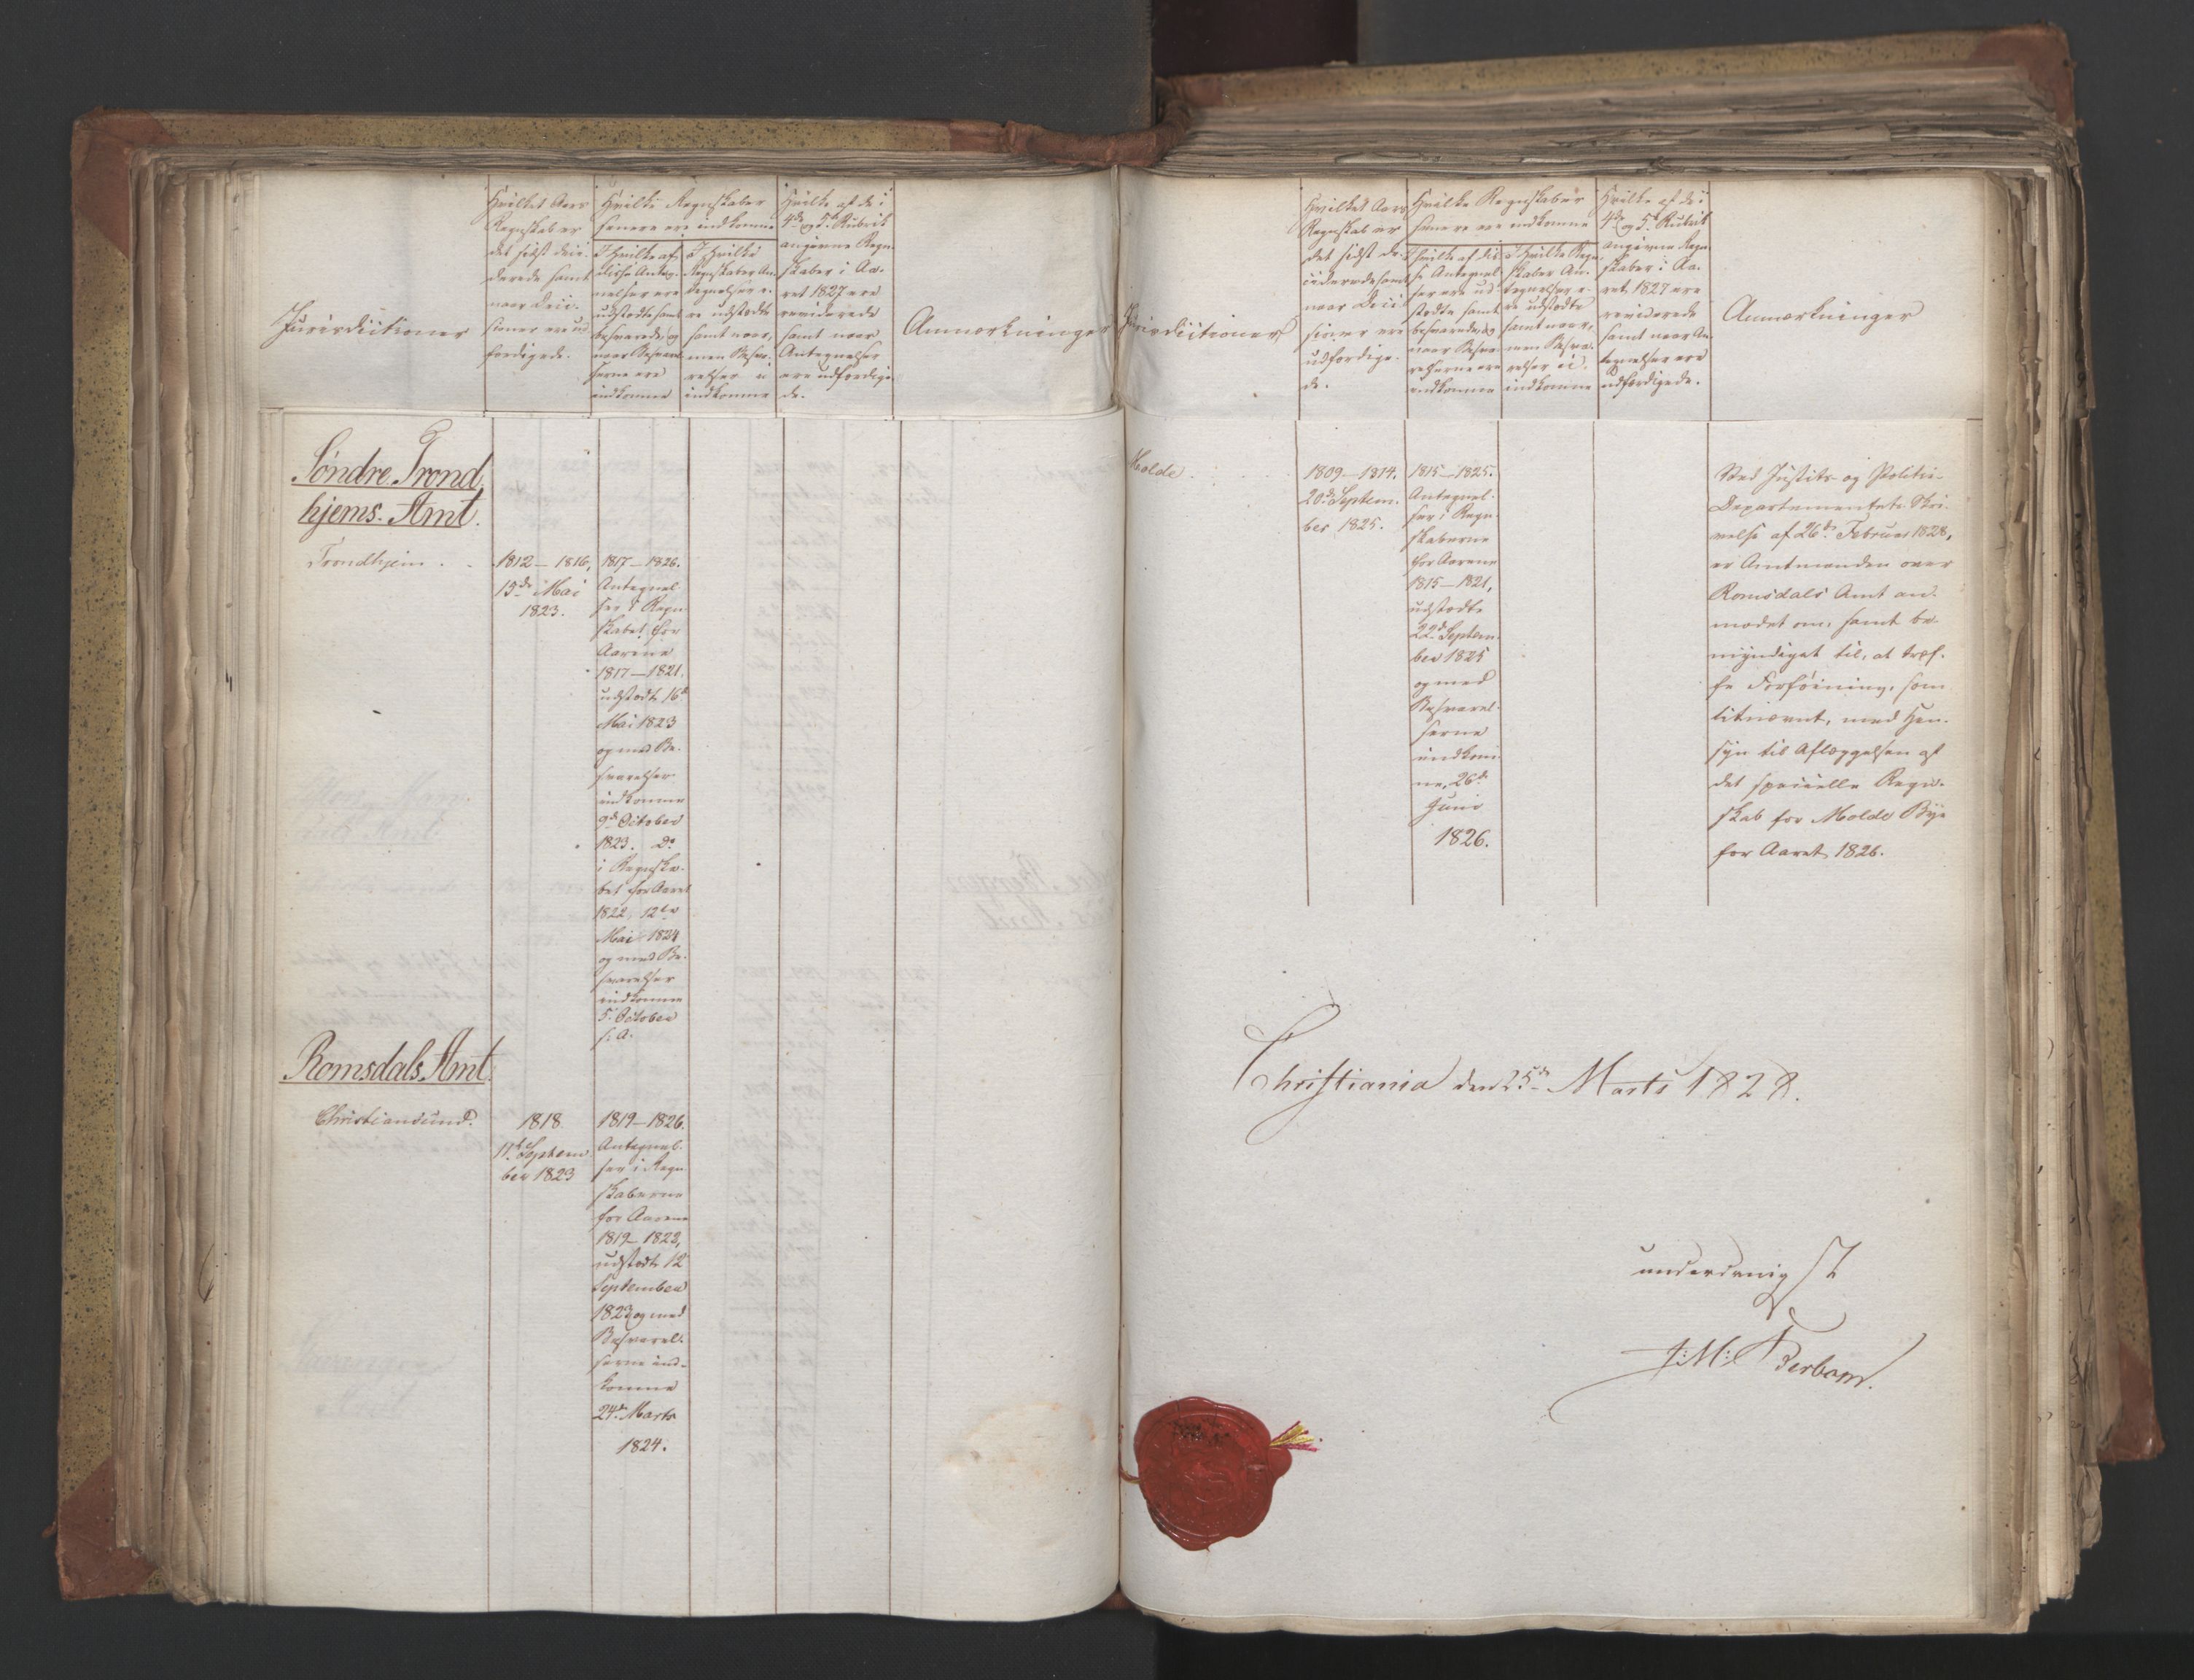 Jurisdictioner
Hvilket Aars
Regnskab er
det sidst deci-
derede samt
naar Deci-
sioner ere ud
færdigede.
Hvilke Regnskaber
senere ere indkomne
I Hvilke af
disse Anteg-
nelser ere
udstædte samt
besvarede, og
naar Besvarel
serne ere
indkomne
I Hvilke
Regnskaber An
tegnelser e-
re udstædte
samt naar,
men Besva-
relser ei
indkomne
Hvilke af de i
4de og 5te Rubrik
angivne Regn-
skaber i Aa-
ret 1827 ere
reviderede
samt naar
Antegnelser
ere udfærdige-
de.
Anmærkninger
Søndre Trond
hjems Amt.
Trondhjem . .
1812 — 1816,
15de Mai
1823.
1817 — 1826.
Antegnel-
ser i Regn-
skabet for
Aarene
1817 — 1821.
udstædt 16de
Mai 1823
og med Be-
svarelser
indkomne
9de October
1823. Do
i Regnska-
bet for Aaret
1822, 12te
Mai 1824
og med Be-
svarelser
indkomne
5. October
s. A.
Romsdals Amt.
Christiansund.
1818
11te Septem
ber 1823
1819 — 1826.
Antegnel-
ser i Regn-
skaberne
for Aarene
1819 — 1822,
udstædt 12
September
1823 og med
Besvarel-
serne ind-
komne
24de Marts
1824.
Jurisdictioner
Hvilket Aars
Regnskab er
det sidst de-
ciderede samt
naar Deci
sioner ere
udfærdige-
de.
Hvilke Regnskaber
senere ere indkomne
I hvilke af dis
se Antegnel-
ser ere ud-
stædte samt
besvarede, og
naar Besva-
relserne ere
indkomne
I Hvilke Regn-
skaber An-
tegnelser e-
re udstædte
samt naar,
men Besva-
relser ei
indkomne
Hvilke af de i
4de og 5te Rubrik
angivne Regn-
skaber i Aa-
ret 1827 ere
reviderede
samt naar An-
tegnelser ere
udfærdigede.
Anmærkninger
Molde .
1809 — 1814.
20de Septem-
ber 1825.
1815 — 1825.
Antegnel-
ser i Regn-
skaberne
for Aarene
1815 — 1821,
udstædte
22de Septem-
ber 1825
og med
Besvarel-
serne
indkom-
ne, 26de
Juni
1826.
Ved Justits- og Politie-
Departementets Skri-
velse af 26de Februar 1828,
er Amtmanden over
Romsdals Amt an-
modet om, samt be-
myndiget til, at træf-
fe Forføining, som
titnævnt, med Hen-
syn til Aflæggelsen af
det specielle Regn-
skab for Molde Bye
for Aaret 1826.
Christiania den 25de Marts 1828.
underdanigst